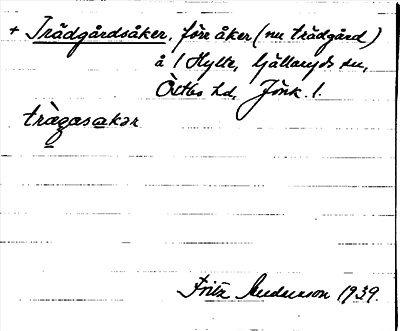 + Trädgårdsåker, förr åker (nu trädgård)
å 1 Hylte, Gällaryds sn,
Östbo hd, Jönk. l.
trägasakər
Fritz Anderson 1939.